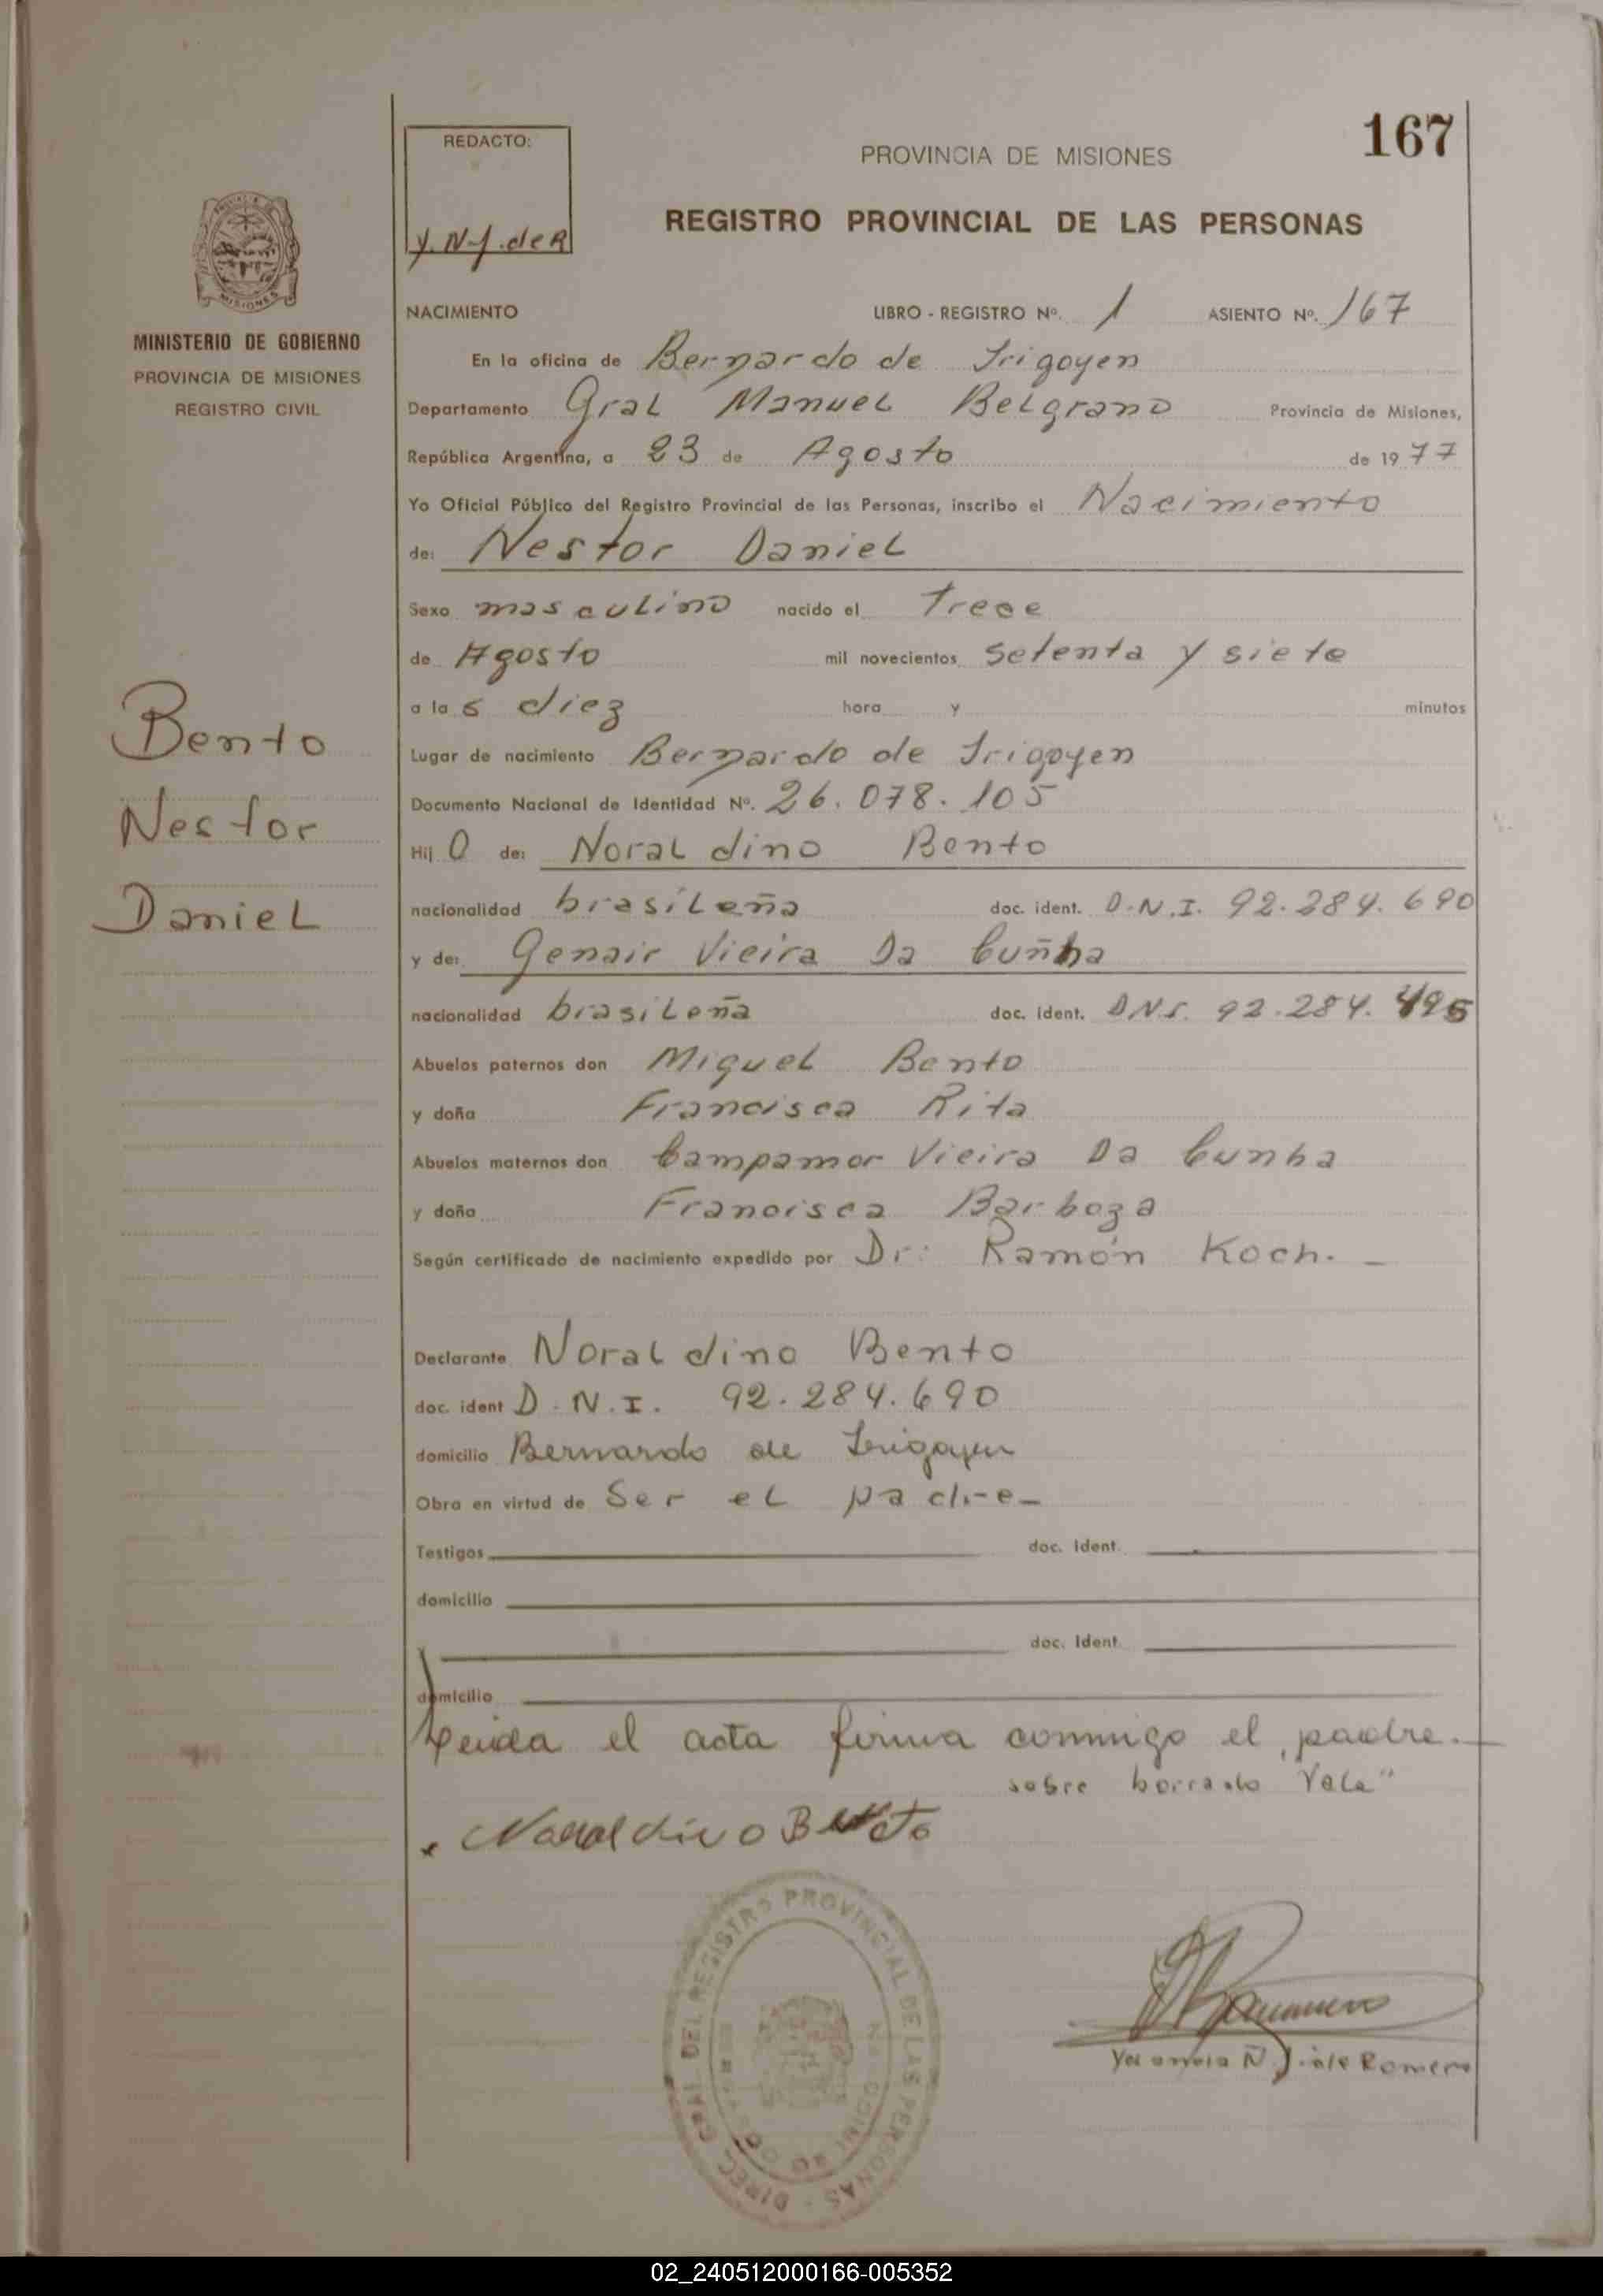 167
REDACTO:
Y. N J. de R
PROVINCIA DE MISIONES
REGISTRO PROVINCIAL DE LAS PERSONAS
MISIONES
MINISTERIO DE GOBIERNO
PROVINCIA DE MISIONES
REGISTRO CIVIL
Bento
Nestor
Daniel
NACIMIENTO LIBRO - REGISTRO Nº. 1 ASIENTO Nº. 167
En la oficina de Bernardo de Irigoyen
Departamento Gral Manuel Belgrano Provincia de Misiones,
República Argentina, a 23 de Agosto de 1977
Yo Oficial Público del Registro Provincial de las Personas, inscribo el Nacimiento
de: Nestor Daniel
Sexo masculino nacido el trece
de Agosto mil novecientos setenta y siete
a las diez hora y minutos
Lugar de nacimiento Bernardo de Irigoyen
Documento Nacional de Identidad Nº. 26.078.105
Hijo de: Noraldino Bento
nacionalidad brasileña doc. ident. D.N.I. 92.284.690
y de: Genair Vieira Da Cuñha
nacionalidad brasileña doc. ident. DNI. 92.284.495
Abuelos paternos don Miguel Bento
y doña Francisca Rita
Abuelos maternos don Campamor Vieira Da Cunha
y doña Francisca Barboza
Según certificado de nacimiento expedido por Dr: Ramón Koch.-
Declarante Noraldino Bento
doc. ident D.N.I. 92.284.690
domicilio Bernardo de Irigoyen
Obra en virtud de ser el padre-
Testigos doc. ident.
domicilio
y doc. ident.
domicilio
Leida el acta firma conmigo el padre.-
sobre borrado "Vale"
Noraldino Bento
DIREC. GRAL. DEL REGISTRO PROVINCIAL DE LAS PERSONAS
Romero